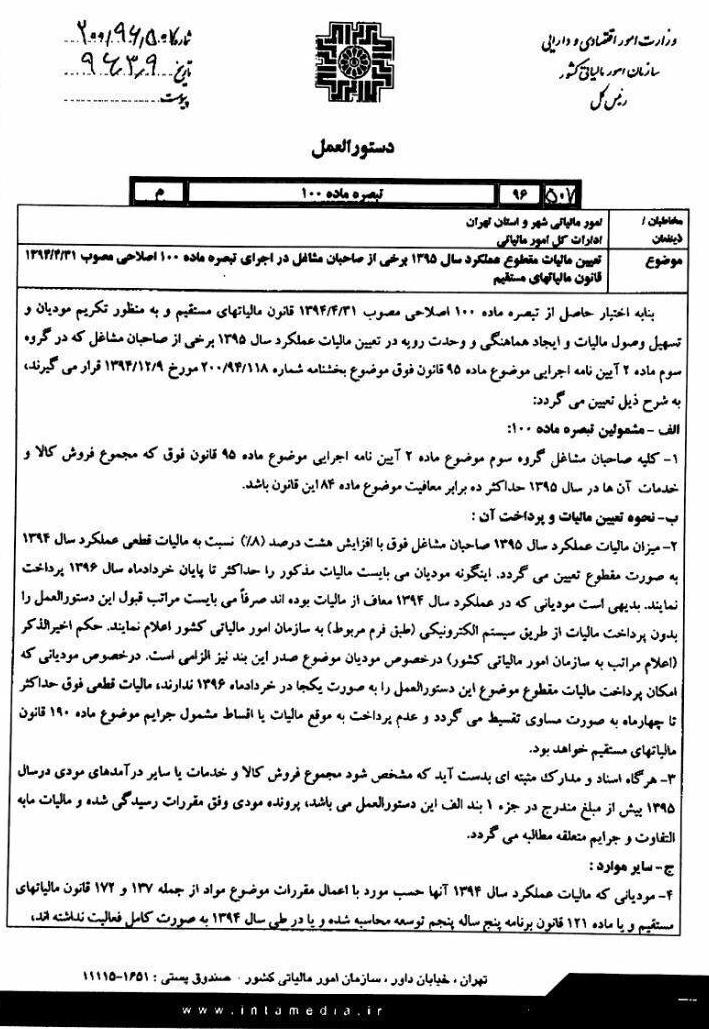 وزارت امور اقتصادی و دارایی
سازمان امور مالیاتی کشور
رئیس کل
شماره ۲۰۰/۹۶/۵۰۷
تاریخ ۹۶/۳/۹
پیوست
دستورالعمل
۵۰۷ ۹۶ تبصره ماده ۱۰۰ م
مخاطبان / ذینفعان
امور مالیاتی شهر و استان تهران
ادارات کل امور مالیاتی
موضوع
تعیین مالیات مقطوع عملکرد سال ۱۳۹۵ برخی از صاحبان مشاغل در اجرای تبصره ماده ۱۰۰ اصلاحی مصوب ۱۳۹۴/۴/۳۱
قانون مالیاتهای مستقیم
بنابه اختیار حاصل از تبصره ماده ۱۰۰ اصلاحی مصوب ۱۳۹۴/۴/۳۱ قانون مالیاتهای مستقیم و به منظور تکریم مودیان و
تسهیل وصول مالیات و ایجاد هماهنگی و وحدت رویه در تعیین مالیات عملکرد سال ۱۳۹۵ برخی از صاحبان مشاغل که در گروه
سوم ماده ۲ آیین نامه اجرایی موضوع ماده ۹۵ قانون فوق موضوع بخشنامه شماره ۲۰۰/۹۴/۱۱۸ مورخ ۱۳۹۴/۱۲/۹ قرار می گیرند،
به شرح ذیل تعیین می گردد:
الف - مشمولین تبصره ماده ۱۰۰:
۱- کلیه صاحبان مشاغل گروه سوم موضوع ماده ۲ آیین نامه اجرایی موضوع ماده ۹۵ قانون فوق که مجموع فروش کالا و
خدمات آن ها در سال ۱۳۹۵ حداکثر ده برابر معافیت موضوع ماده ۸۴ این قانون باشد.
ب- نحوه تعیین مالیات و پرداخت آن :
۲- میزان مالیات عملکرد سال ۱۳۹۵ صاحبان مشاغل فوق با افزایش هشت درصد (۸٪) نسبت به مالیات قطعی عملکرد سال ۱۳۹۴
به صورت مقطوع تعیین می گردد. اینگونه مودیان می بایست مالیات مذکور را حداکثر تا پایان خردادماه سال ۱۳۹۶ پرداخت
نمایند. بدیهی است مودیانی که در عملکرد سال ۱۳۹۴ معاف از مالیات بوده اند صرفاً می بایست مراتب قبول این دستورالعمل را
بدون پرداخت مالیات از طریق سیستم الکترونیکی (طبق فرم مربوط) به سازمان امور مالیاتی کشور اعلام نمایند. حکم اخیرالذکر
(اعلام مراتب به سازمان امور مالیاتی کشور) درخصوص مودیان موضوع صدر این بند نیز الزامی است. درخصوص مودیانی که
امکان پرداخت مالیات مقطوع موضوع این دستورالعمل را به صورت یکجا در خردادماه ۱۳۹۶ ندارند، مالیات قطعی فوق حداکثر
تا چهارماه به صورت مساوی تقسیط می گردد و عدم پرداخت به موقع مالیات یا اقساط مشمول جرایم موضوع ماده ۱۹۰ قانون
مالیاتهای مستقیم خواهد بود.
۳- هرگاه اسناد و مدارک مثبته ای بدست آید که مشخص شود مجموع فروش کالا و خدمات یا سایر درآمدهای مودی درسال
۱۳۹۵ بیش از مبلغ مندرج در جزء ۱ بند الف این دستورالعمل می باشد، پرونده مودی وفق مقررات رسیدگی شده و مالیات مابه
التفاوت و جرایم متعلقه مطالبه می گردد.
ج- سایر موارد :
۴- مودیانی که مالیات عملکرد سال ۱۳۹۴ آنها حسب مورد با اعمال مقررات موضوع مواد از جمله ۱۳۷ و ۱۷۲ قانون مالیاتهای
مستقیم و یا ماده ۱۲۱ قانون برنامه پنج ساله پنجم توسعه محاسبه شده و یا در طی سال ۱۳۹۴ به صورت کامل فعالیت نداشته اند،
تهران ، خیابان داور ، سازمان امور مالیاتی کشور - صندوق پستی : ۱۶۵۱-۱۱۱۱۵
www.intamedia.ir